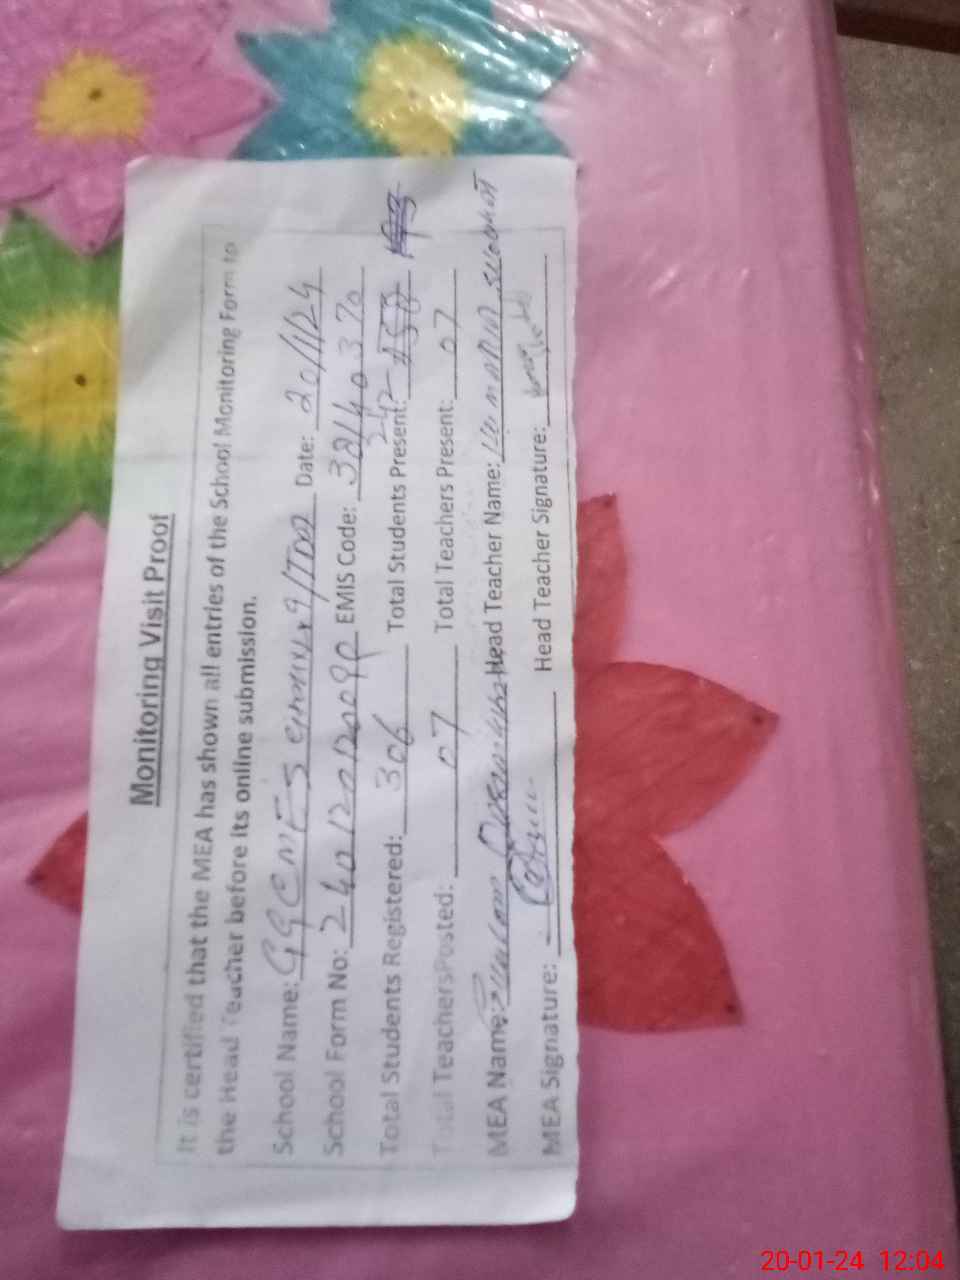 Monitoring Visit Proof
It is certified that the MEA has shown all entries of the School Monitoring Form to
the Head Teacher before its online submission.
School Name: GGCMES Date: 20/1/24
School Form No: EMIS Code: 38140370
Total Students Registered: 306 Total Students Present: 242
Total TeachersPosted: 07 Total Teachers Present: 07
MEA Name: Head Teacher Name:
MEA Signature: Head Teacher Signature:
20-01-24 12:04